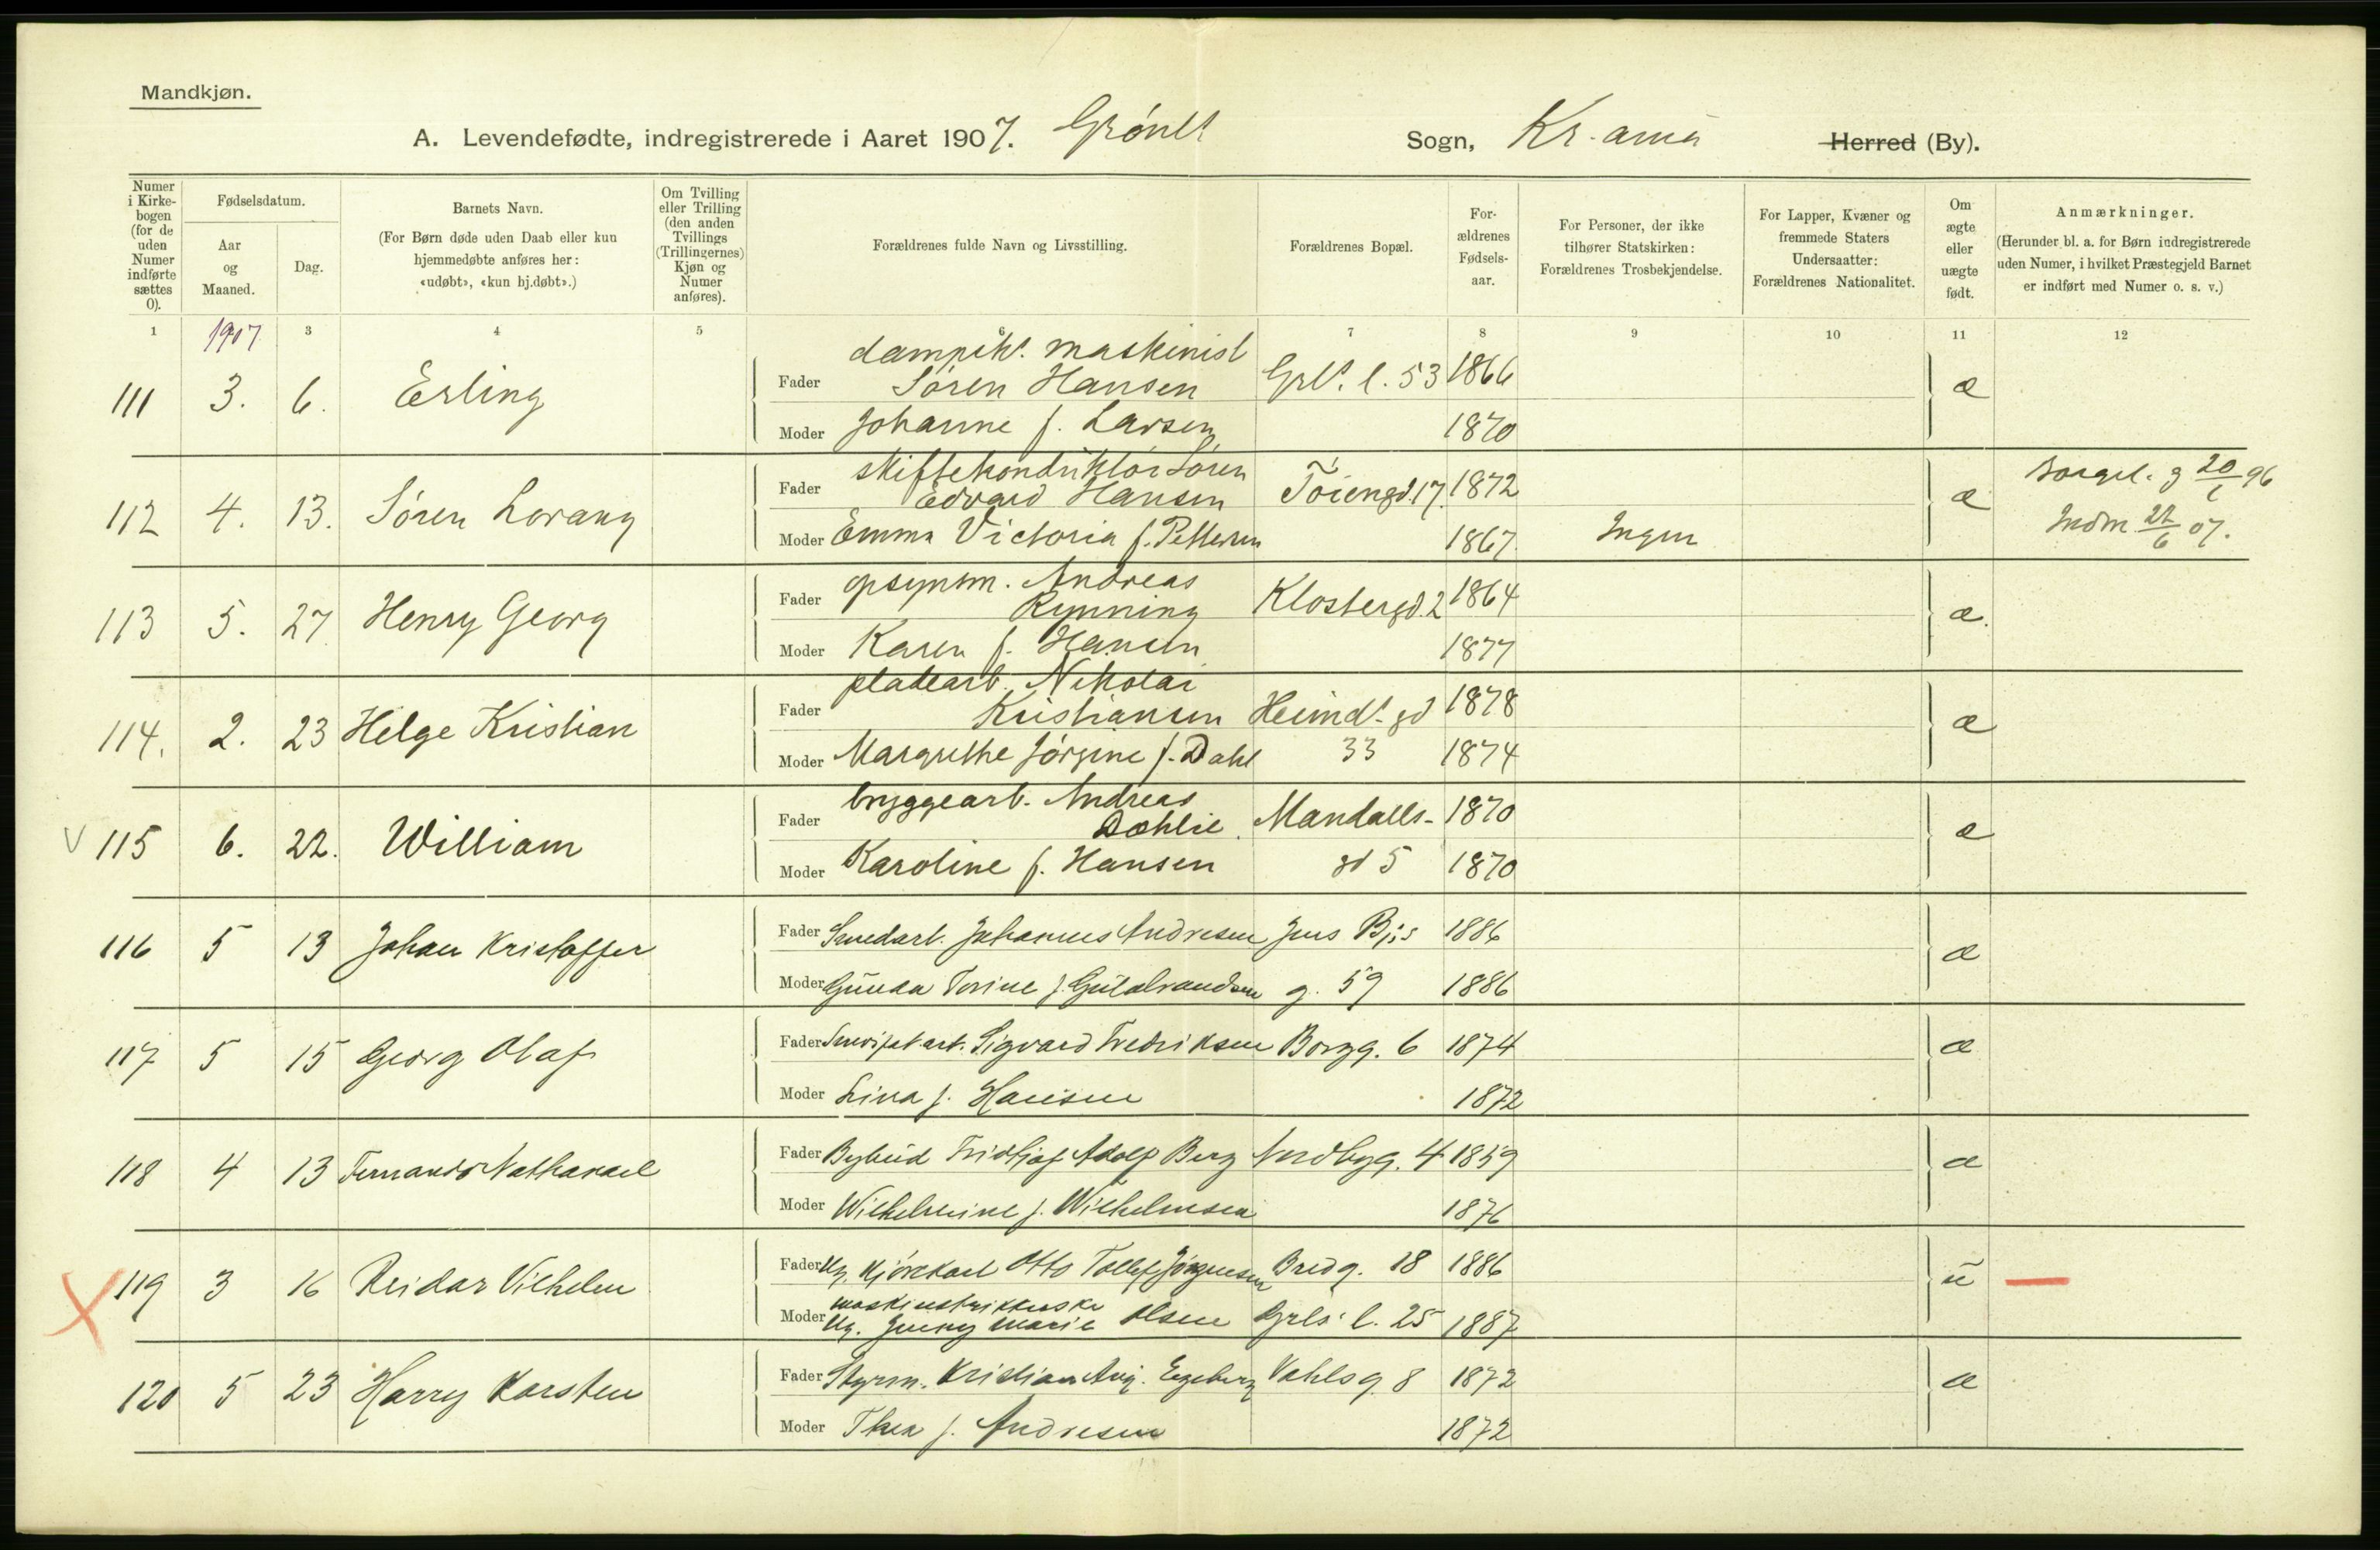 Mandkjøn.
A. Levendefødte, indregistrerede i Aaret 1907. Grønl. Sogn, Kr.ania Herred (By).
Numer i Kirkebogen (for de uden Numer indførte sættes 0).
Fødselsdatum.
Aar og Maaned.
Dag.
Barnets Navn.
(For Børn døde uden Daab eller kun hjemmedøbte anføres her: «udøbt», «kun hj.døbt».)
Om Tvilling eller Trilling (den anden Tvillings (Trillingernes) Kjøn og Numer anføres).
Forældrenes fulde Navn og Livsstilling.
Forældrenes Bopæl.
Forældrenes Fødselsaar.
For Personer, der ikke tilhører Statskirken: Forældrenes Trosbekjendelse.
For Lapper, Kvæner og fremmede Staters Undersaatter: Forældrenes Nationalitet.
Om ægte eller uægte født.
Anmærkninger.
(Herunder bl. a. for Børn indregistrerede uden Numer, i hvilket Præstegjeld Barnet er indført med Numer o. s. v.)
1 3 4 5 6 7 8 9 10 11 12
1907
111 3. 6. Erling
Fader dampsk. maskinist Søren Hansen Grl. l. 53 1866 æ
Moder Johanne f. Larsen 1870
112 4. 13. Søren Lorang
Fader skiftekonduktør Søren Edvard Hansen Tøiengd. 17. 1872 æ Borgel. 20 96
Moder Emma Victoria f. Pettersen 1867. Ingen Indm 22/6 07.
113 5. 27 Henry Georg
Fader opsynsm. Andreas Rynning Klostergd. 2 1864 æ.
Moder Karen f. Hansen 1877
114. 2. 23 Helge Kristian
Fader pladearb. Nikolai Kristiansen Heimd. gd 1878 æ
Moder Margrethe Jørgine f. Dahl 33 1874
V 115 6. 22. William
Fader bryggearb. Andreas Dæhlie. Mandalls- 1870 æ
Moder Karoline f. Hansen gd 5 1870
116 5 13 Johan Kristoffer
Fader Smedarb. Johannes Andresen Jens Bjs 1886 æ
Moder Gunda Torine f. Gulbrandsen g. 59 1886
117 5 15 Georg Olaf
Fader Sigvard Fredriksen Borgg. 6 1874 æ
Moder Lina f. Hansen 1872
118 4 13 Fernando Nathanael
Fader Bybud Fridtjof Adolf Berg Nordbyg. 4 1859 æ
Moder Wilhelmine f. Wilhelmsen 1876
X 119 3 16 Reidar Vilhelm
Fader Ug. Kjørekarl Otto Tollef Jørgensen Bredg. 18 1886 u —
Moder maskinstrikkerske Ug. Jenny Marie Olsen Grls. l. 25 1887
120 5 23 Harry Karsten
Fader Styrm. Kristian Aug. Engeberg Vahlsg. 8 1872 æ
Moder Thea f. Andresen 1872